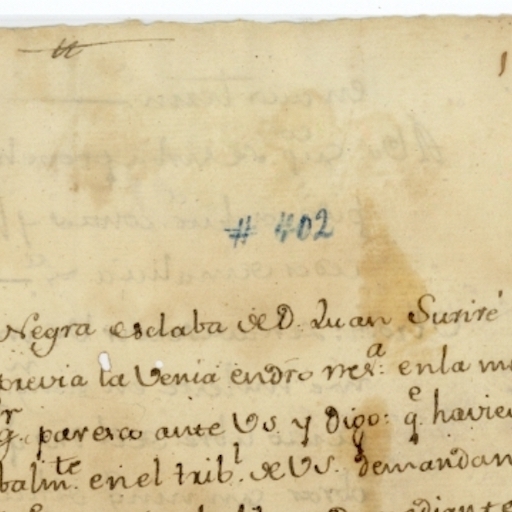 # 402
Negra esclaba de D. Juan Suriré
previa la Venia en dro nes.ª en la m
paresco ante VS. y digo: q.e havien
balm.te en el trib.l de VS. demandan